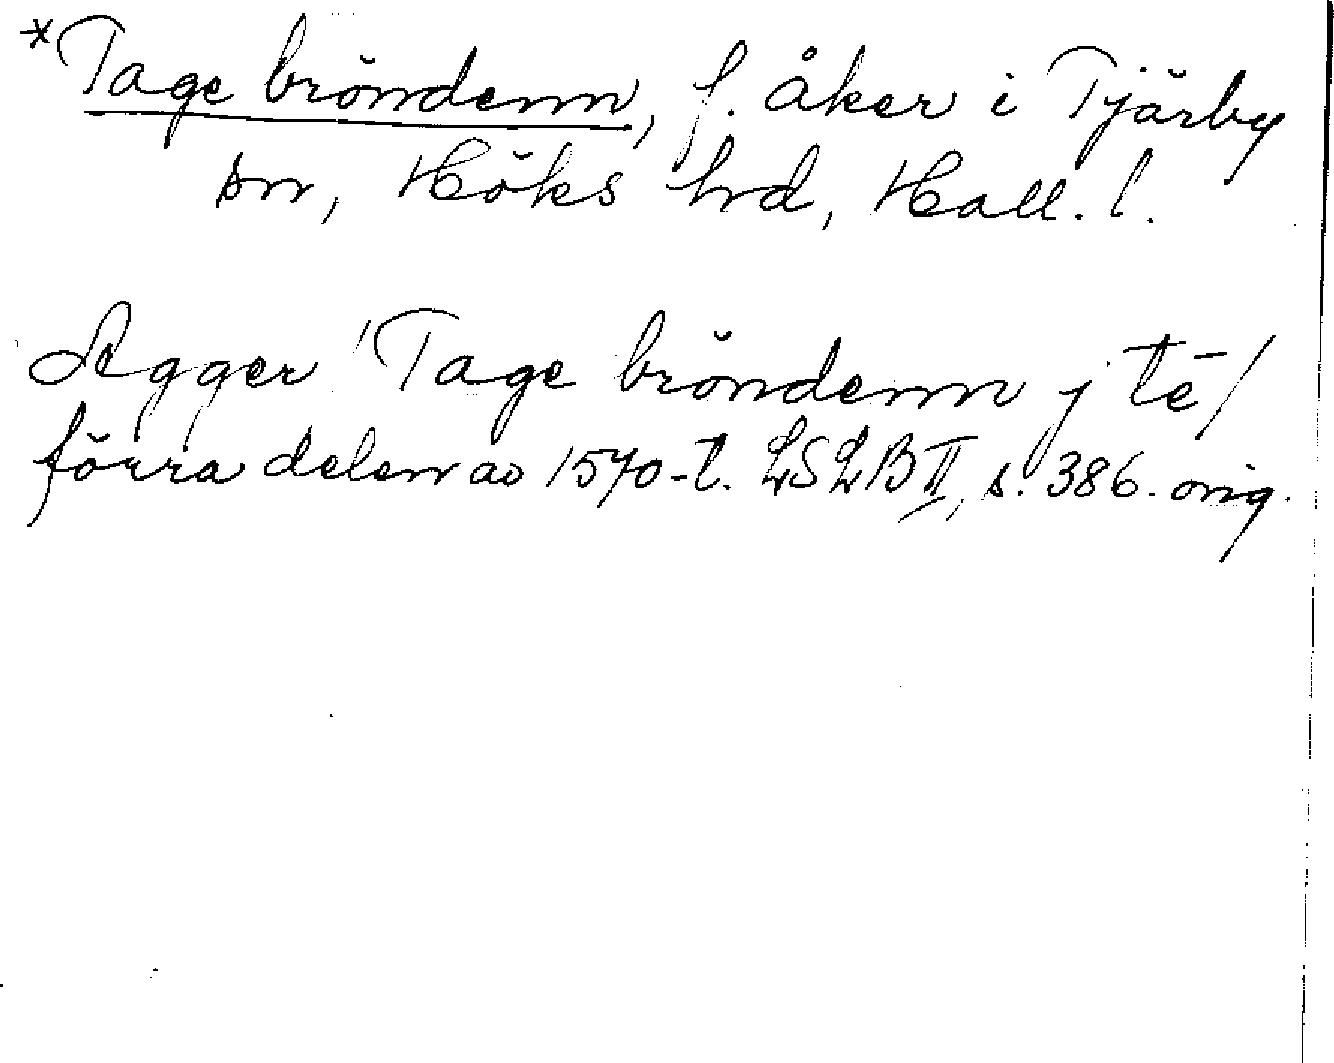 *Tage bröndenn, f. åker i Tjärby
sn, Höks hd, Hall. l.
Aggerˈ Tage bröndenn j tē/
förra delen av 1570-t. LSLB II, s. 386. orig.